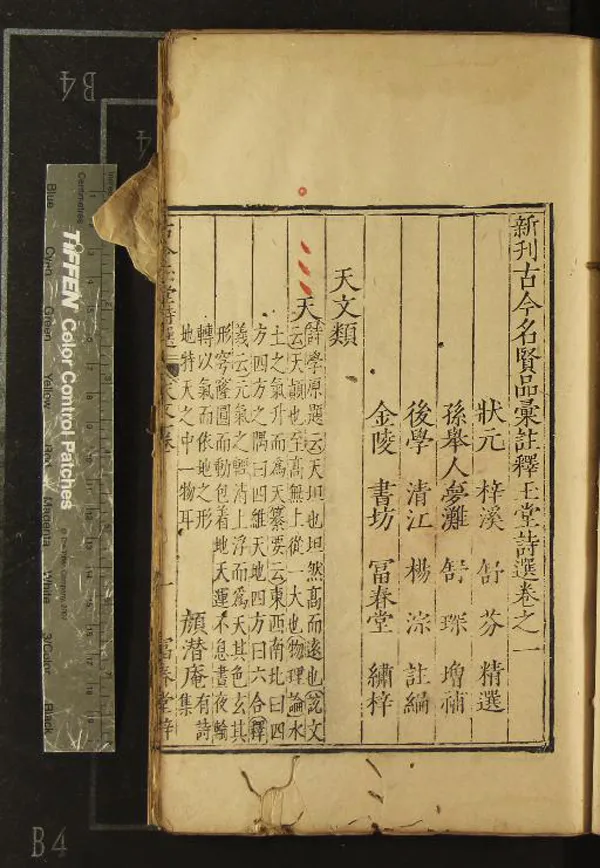 新刊古今名賢品彙註釋王堂詩選卷之一
狀元 梓溪 舒 芬 精選
孫舉人夢灘 舒 琛 增補
後學 清江 楊 淙 註編
金陵 書坊 冨春堂 繡梓
天文類
天
詩學原題云天坦也坦然高而遠也說文
云天顛也至高無上從一大也物理論水
土之氣升而爲天纂要云東西南北曰四
方四方之隅曰四維天地四方曰六合釋
義云元氣之輕清上浮而爲天其色玄其
形穹窿圓而動包着地天運不息晝夜輪
轉以氣而依地之形
地特天之中一物耳
顏潜庵有詩集
堂詩選
天文 卷
一
冨春堂梓
TIFFEN Color Control Patches
Centimetres
Blue
Green
Yellow
Magenta
White
3/Color
Black
B4
B4